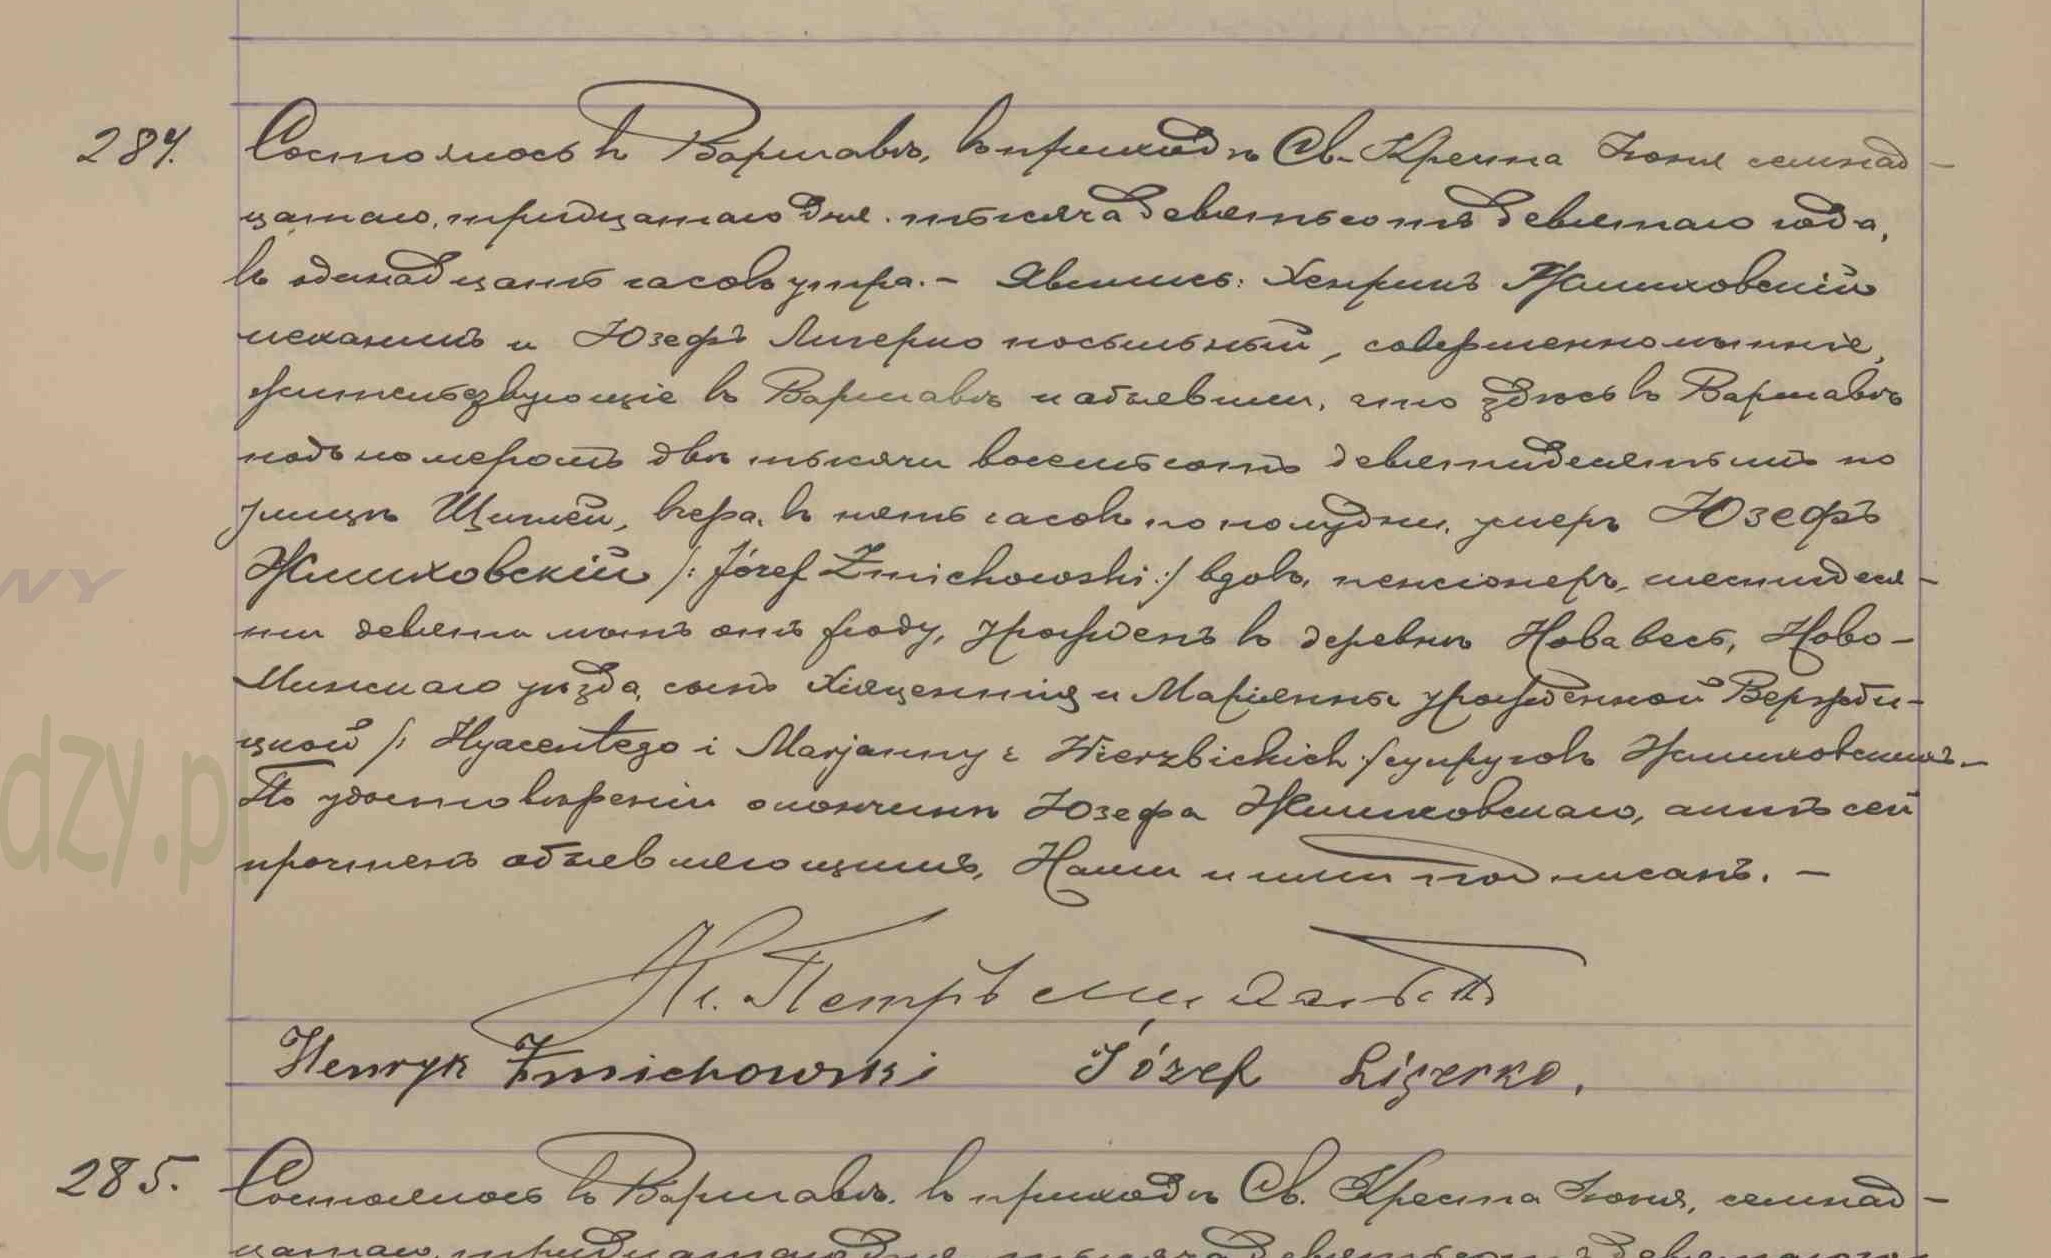 284. Состоялось въ Варшавѣ, въ приходѣ Св. Креста Іюня семнад-
цатаго, тридцатаго дня тысяча девятьсотъ девятаго года,
въ одинадцать часовъ утра. — Явились: Хенрикъ Жмиховскій
механикъ и Юзефъ Лигерко посыльный, совершеннолѣтніе,
жительствующіе въ Варшавѣ и объявили, что здѣсь въ Варшавѣ
подъ номеромъ двѣ тысячи восемьсотъ девятидесятымъ по
улицѣ Щиглей, вчера, въ пять часовъ по полудни, умеръ Юзефъ
Жмиховскій /: Józef Żmichowski :/ вдовъ, пенсіонеръ, шестидеся-
ти девяти лѣтъ отъ роду, урожденъ въ деревнѣ Нова весь, Ново-
Минскаго уѣзда, сынъ Хіяцентія и Маріянны урожденной Вержби-
цкой /: Hyacentego i Marjanny z Wierzbickich :/ супруговъ Жмиховскихъ. —
По удостовѣреніи о кончинѣ Юзефа Жмиховскаго, актъ сей
прочтенъ объявляющимъ, Нами и ими подписанъ. —
Кс. Петръ
Henryk Żmichowski Józef Ligerko.
285. Состоялось въ Варшавѣ, въ приходѣ Св. Креста Іюня, семнад-
цатаго, тридцатаго дня, тысяча девятьсотъ девятаго